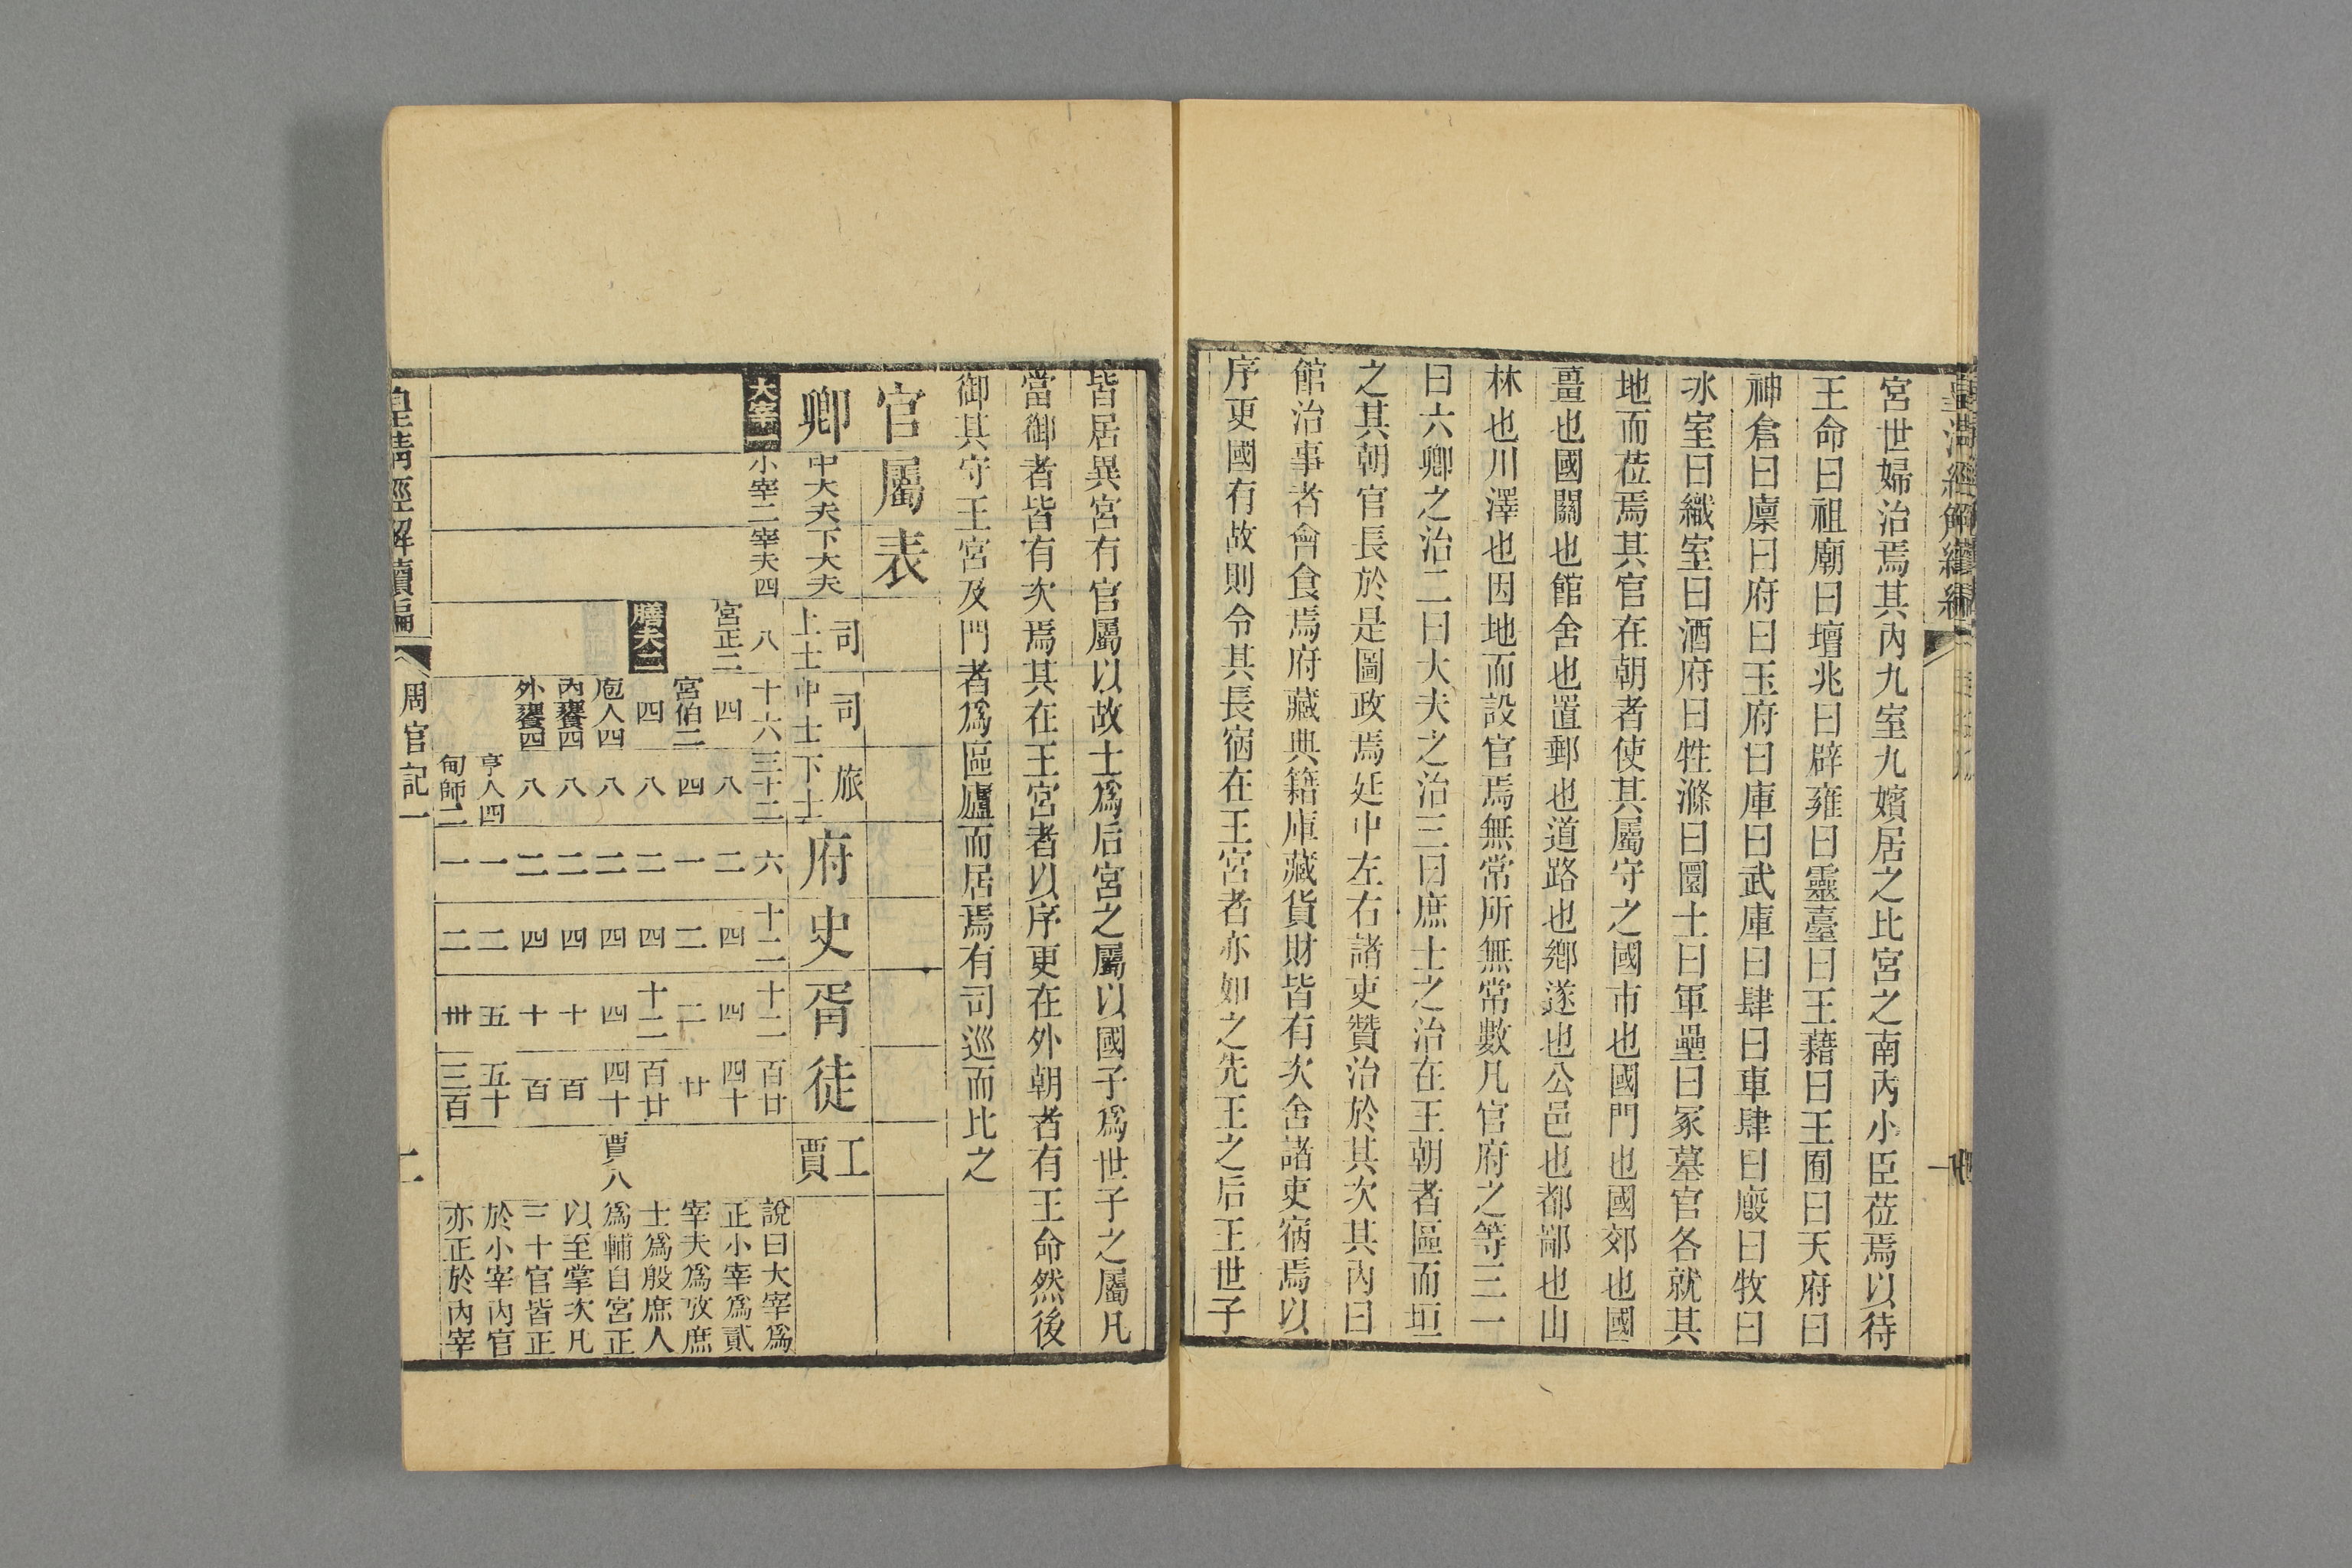 皇清經解續編
宮世婦治焉其內九室九嬪居之比宮之南內小臣莅焉以待
王命曰祖廟曰壇兆曰辟雍曰靈臺曰王藉曰王囿曰天府曰
神倉曰廩曰府曰玉府曰庫曰武庫曰肆曰車肆曰廄曰牧曰
冰室曰織室曰酒府曰牲滌曰圜土曰軍壘曰冢墓官各就其
地而莅焉其官在朝者使其屬守之國市也國門也國郊也國
畺也國關也館舍也置郵也道路也鄉遂也公邑也都鄙也山
林也川澤也因地而設官焉無常所無常數凡官府之等三一
曰六卿之治二曰大夫之治三曰庶士之治在王朝者區而垣
之其朝官長於是圖政焉廷中左右諸吏贊治於其次其內曰
館治事者會食焉府藏典籍庫藏貨財皆有次舍諸吏宿焉以
序更國有故則令其長宿在王宮者亦如之先王之后王世子
皆居異宮有官屬以故士爲后宮之屬以國子爲世子之屬凡
當御者皆有次焉其在王宮者以序更在外朝者有王命然後
御其守王宮及門者爲區廬而居焉有司巡而比之
官屬表
卿 中大夫 下大夫 上士司 中士司 下士旅 府 史 胥 徒 工賈
大宰一 小宰二 宰夫四 八 十六 三十二 六 十二 十二 百廿 說曰大宰爲
宮正二 四 八 二 四 四 四十 正小宰爲貳
宮伯二 四 一 二 二 廿 宰夫爲攷庶
膳夫二 四 八 二 四 十二 百廿 士爲殷庶人
庖人四 八 二 四 四 四十 賈八 爲輔自宮正
內饔四 八 二 四 十 百 以至掌次凡
外饔四 八 二 四 十 百 三十官皆正
亨人四 一 二 五 五十 於小宰內官
甸師二 一 二 卅 三百 亦正於內宰
皇清經解續編 周官記一 二